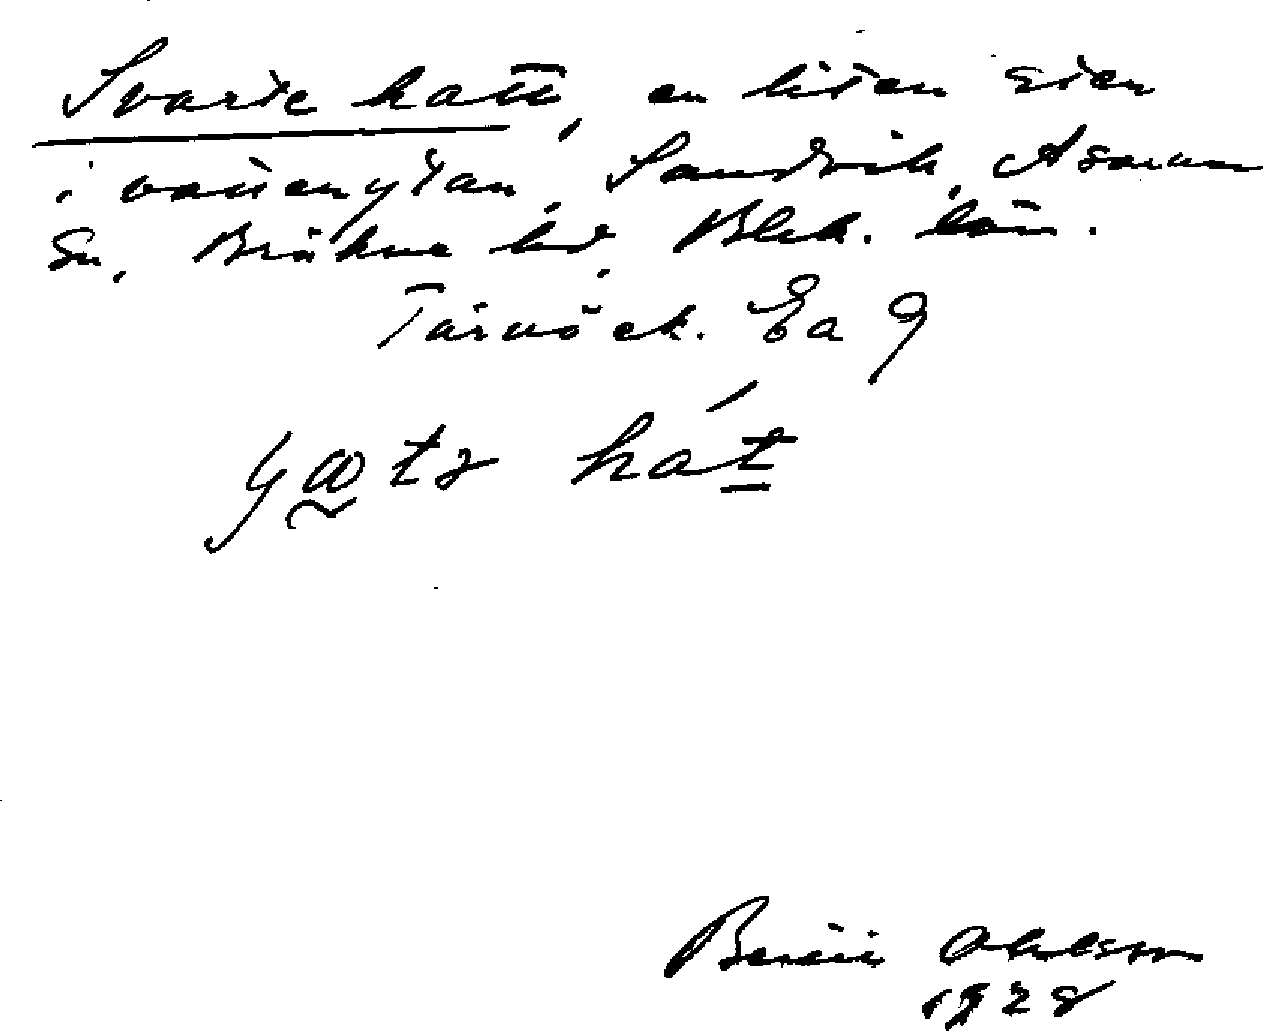 Svarte hatt, en liten sten
i vattenytan, Sandvik, Asarum
sn, Bräkne hd, Blek. län.
Tärnö ek. Ea 9
hát
Bertil Ohlsson
1928